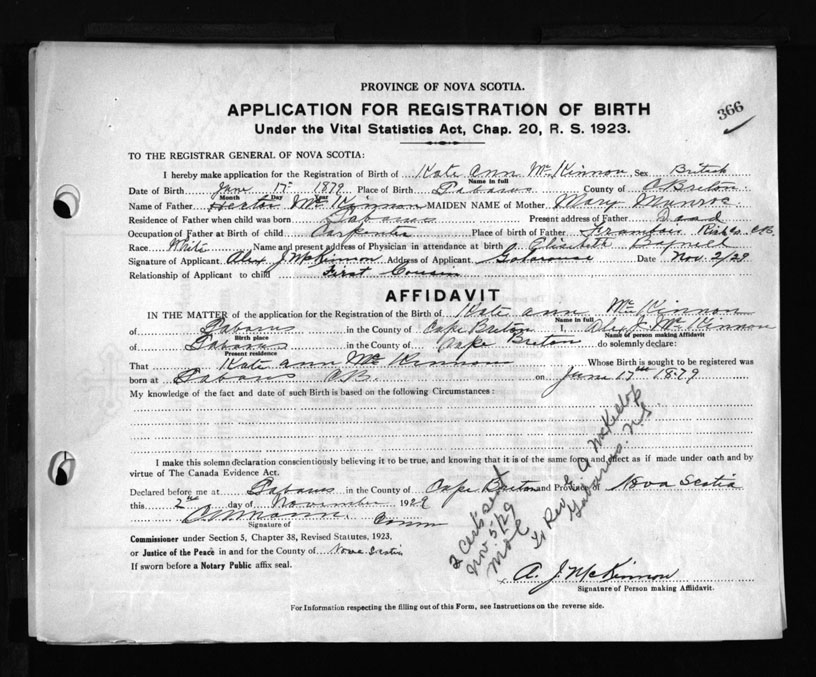 PROVINCE OF NOVA SCOTIA.
366
APPLICATION FOR REGISTRATION OF BIRTH
Under the Vital Statistics Act, Chap. 20, R. S. 1923.
TO THE REGISTRAR GENERAL OF NOVA SCOTIA:
I hereby make application for the Registration of Birth of Kate Ann McKinnon Sex British
Name in full
Date of Birth June 17 1879 Place of Birth Gabarus County of C Breton
Month Day Year
Name of Father Hector McKinnon MAIDEN NAME of Mother Mary Munroe
Residence of Father when child was born Gabarus Present address of Father Dead
Occupation of Father at Birth of child Carpenter Place of birth of Father Framboise Rich Co. C.B.
Race White Name and present address of Physician in attendance at birth Elizabeth Bagnell
Signature of Applicant Alex J McKinnon Address of Applicant Date Nov. 2/29
Relationship of Applicant to child First Cousin
AFFIDAVIT
IN THE MATTER of the application for the Registration of the Birth of Kate Ann McKinnon
Name in full
of Gabarus in the County of Cape Breton I, Alex J. McKinnon
Birth place Name of person making Affidavit
of Gabarus in the County of Cape Breton do solemnly declare:
Present residence
That Kate Ann McKinnon Whose Birth is sought to be registered was
born at Gabarus C.B. on June 17th 1879
My knowledge of the fact and date of such Birth is based on the following Circumstances:
I make this solemn declaration conscientiously believing it to be true, and knowing that it is of the same force and effect as if made under oath and by
virtue of The Canada Evidence Act.
Declared before me at Gabarus in the County of Cape Breton and Province of Nova Scotia
this 2nd day of November 1929
Comm
Signature of
Commissioner under Section 5, Chapter 38, Revised Statutes, 1923.
or Justice of the Peace in and for the County of Nova Scotia
If sworn before a Notary Public affix seal.
2 Certs sent
Nov 5/29
to Rev. A McKellop
Gabarus. N.S.
A. J. McKinnon
Signature of Person making Affidavit.
For Information respecting the filling out of this Form, see Instructions on the reverse side.